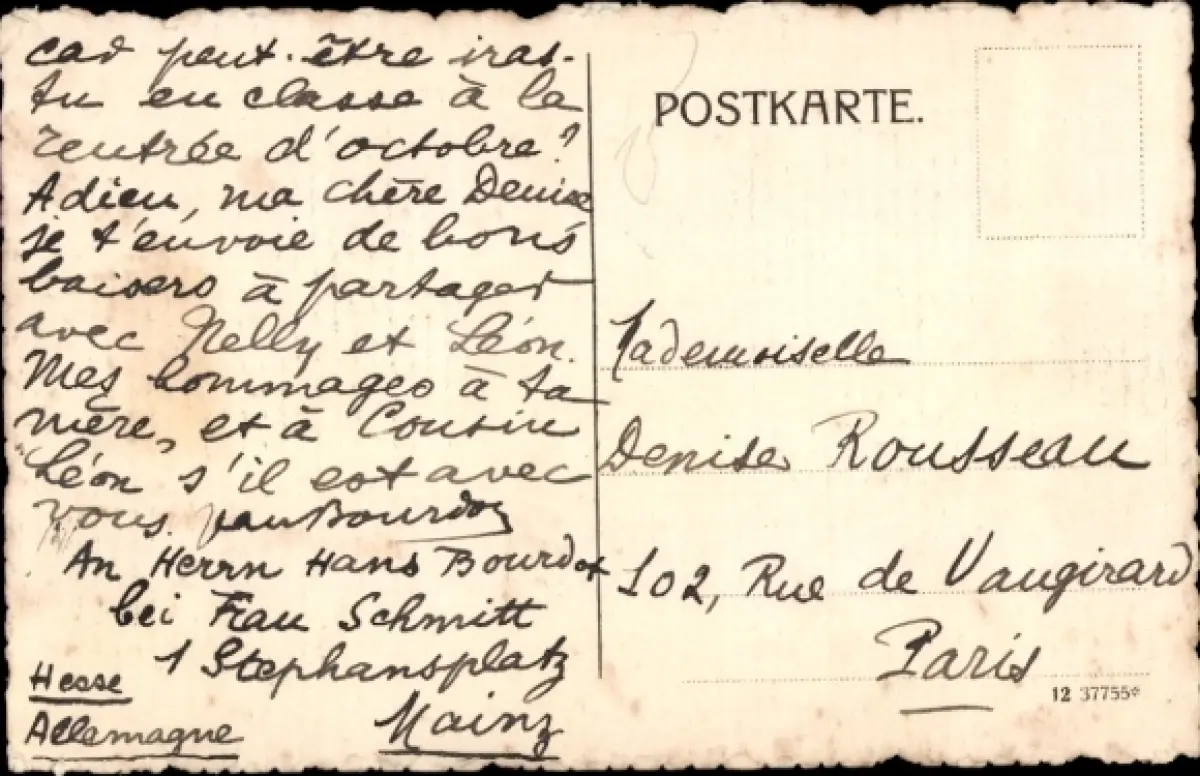 car peut-être iras-
tu en classe à la
rentrée d'octobre?
Adieu, ma chère Denise
je t'envoie de bons
baisers à partager
avec Nelly et Léon.
Mes hommages à ta
mère, et à Cousin
Léon s'il est avec
vous. Jean Bourdot
An Herrn Hans Bourdot
bei Frau Schmitt
1 Stephansplatz
Mainz
Hesse
Allemagne
POSTKARTE.
Mademoiselle
Denise Rousseau
102, Rue de Vaugirard
Paris
12 37755*